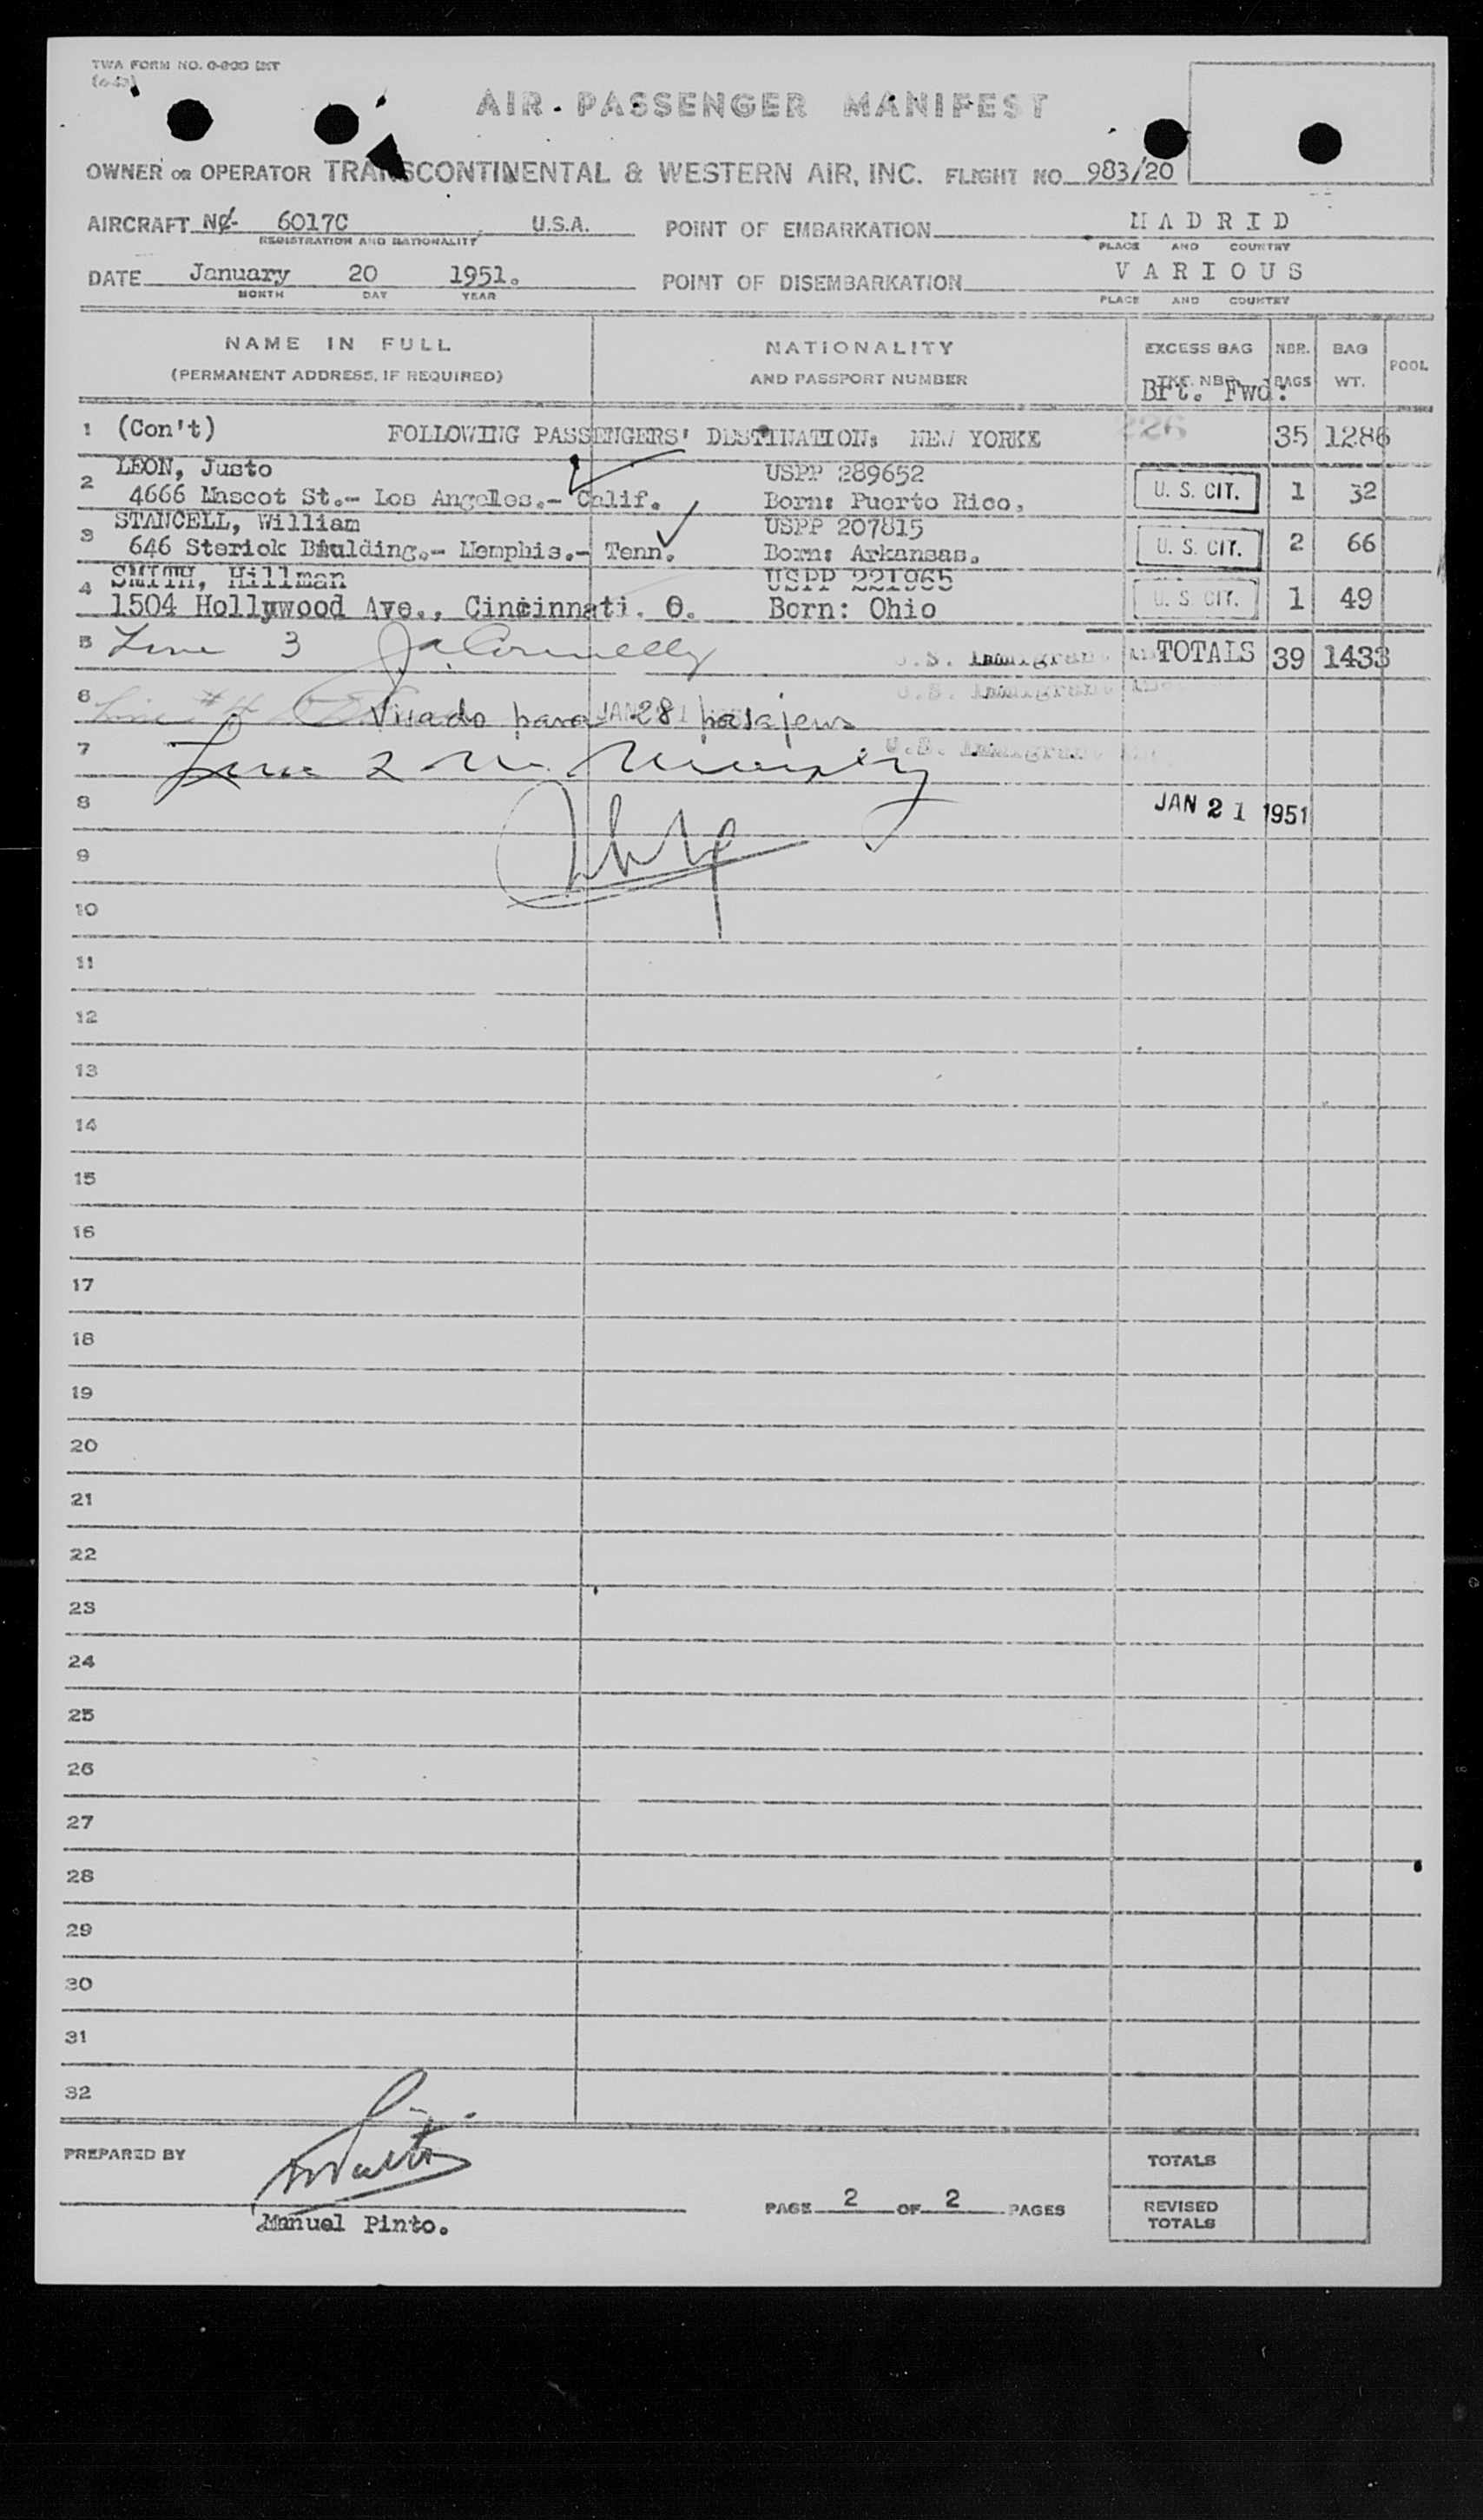 TWA FORM NO. 0-800 INT
AIR-PASSENGER MANIFEST
OWNER OR OPERATOR TRANSCONTINENTAL & WESTERN AIR, INC. FLIGHT NO. 983/20
AIRCRAFT NC- 6017C U.S.A. POINT OF EMBARKATION MADRID
REGISTRATION AND NATIONALITY PLACE AND COUNTRY
DATE January 20 1951. POINT OF DISEMBARKATION VARIOUS
MONTH DAY YEAR PLACE AND COUNTRY
NAME IN FULL NATIONALITY EXCESS BAG NBR. BAG POOL
(PERMANENT ADDRESS, IF REQUIRED) AND PASSPORT NUMBER TKT. NBR. BAGS WT.
Bft. Fwd:
1 (Con't) FOLLOWING PASSENGERS' DESTINATION: NEW YORKE 226 35 1286
2 LEON, Justo USPP 289652 U. S. CIT. 1 32
4666 Mascot St.- Los Angeles.- Calif. Born: Puerto Rico,
3 STANCELL, William USPP 207815 U. S. CIT. 2 66
646 Sterick Building.- Memphis.- Tenn. Born: Arkansas.
4 SMITH, Hillman USPP 221965 U. S. CIT. 1 49
1504 Hollywood Ave., Cincinnati. O. Born: Ohio
5 Line 3 J. A. Connelly U.S. Immigrant TOTALS 39 1433
U.S. Immigrant
6 Line #4 Visado para 28 pasajeros JAN
7 Line 2 M. Murphy U.S. Immigrant
8 JAN 21 1951
9
10
11
12
13
14
15
16
17
18
19
20
21
22
23
24
25
26
27
28
29
30
31
32
PREPARED BY TOTALS
PAGE 2 OF 2 PAGES REVISED TOTALS
Manuel Pinto.